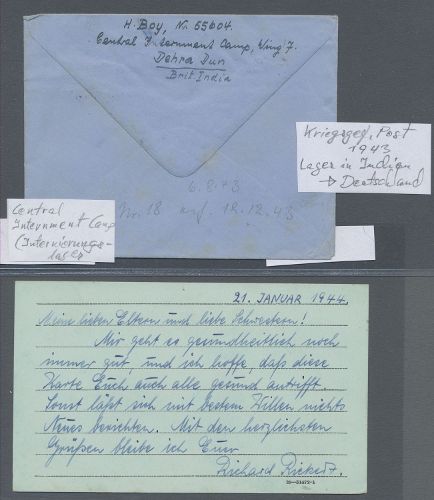 H. Boy, No. 55604.
Central Internment Camp, Wing 7.
Dehra Dun
Brit India
Kriegsgef. Post
1943
Lager in Indien
→ Deutschland
6.8.43
Nr. 18 auf. 12.12.43
Central
Internment Camp
(Internierungs-
lager
21. JANUAR 1944.
Meine lieben Eltern und liebe Schwestern!
Mir geht es gesundheitlich noch
immer gut, und ich hoffe, daß diese
Karte Euch auch alle gesund antrifft.
Sonst läßt sich mit bestem Willen nichts
Neues berichten. Mit den herzlichsten
Grüßen bleibe ich Euer
Richard